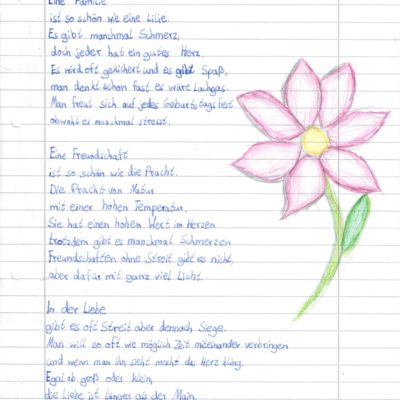 Eine Familie
ist so schön wie eine Lilie.
Es gibt manchmal Schmerz,
doch jeder hat ein gutes Herz.
Es wird oft gekichert und es gibt Spaß,
man denkt schon fast es wäre Lachgas.
Man freut sich auf jedes Geburtstagsfest
obwohl es manchmal stresst.
Eine Freundschaft
ist so schön wie die Pracht.
Die Pracht von Natur
mit einer hohen Temperatur.
Sie hat einen hohen Wert im Herzen
trotzdem gibt es manchmal Schmerzen
Freundschaften ohne Streit gibt es nicht,
aber dafür mit ganz viel Licht.
In der Liebe
gibt es oft Streit aber dennoch Siege.
Man will so oft wie möglich Zeit miteinander verbringen
und wenn man ihn sieht macht das Herz kling.
Egal ob groß oder klein,
die Liebe ist länger als der Main.